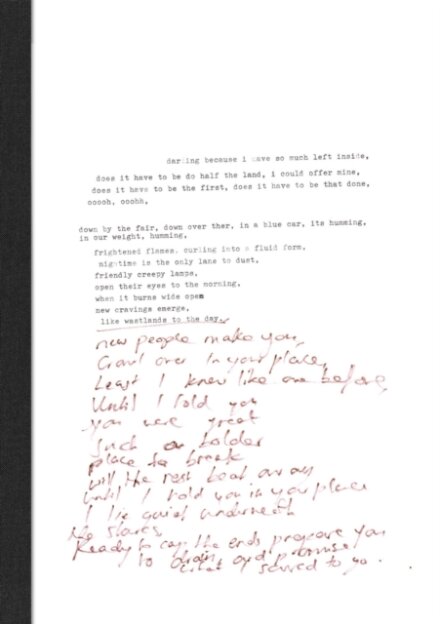 darling because i have so much left inside,
does it have to be do half the land, i could offer mine,
does it have to be the first, does it have to be that done,
ooooh, ooohh,
down by the fair, down over ther, in a blue car, its humming,
in our weight, humming,
frightened flames, curling into a fluid form,
nightime is the only lane to dust,
friendly creepy lamps,
open their eyes to the morning,
when it burns wide open
new cravings emerge,
like wastlands to the day,
new people make you,
Crawl over in your place,
Least I knew like one before,
Until I told you
you were great
Such a bolder
place to break
will the rest boat away
until I told you in your place
I lie quiet underneath
the stares
Ready to the ends prepare you
to and promise
scared to you.